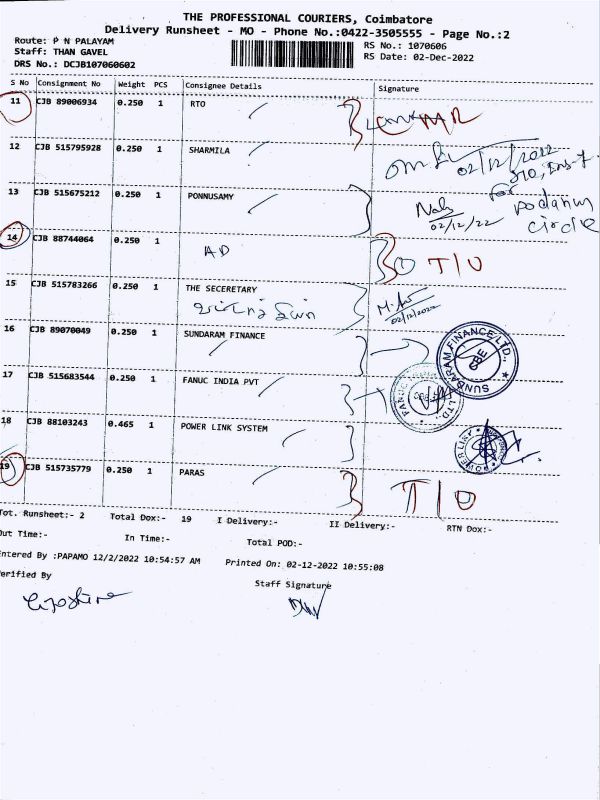 THE PROFESSIONAL COURIERS, Coimbatore
Delivery Runsheet - MO - Phone No.:0422-3505555 - Page No.:2
Route: P N PALAYAM
Staff: THAN GAVEL
DRS No.: DCJB107060602
RS No.: 1070606
RS Date: 02-Dec-2022
S No Consignment No Weight PCS Consignee Details Signature
11 CJB 89006934 0.250 1 RTO
12 CJB 515795928 0.250 1 SHARMILA 02/12/2022
13 CJB 515675212 0.250 1 PONNUSAMY 02/12/22
for podanur circle
14 CJB 88744064 0.250 1 AD T/O
15 CJB 515783266 0.250 1 THE SECERETARY 02/12/2022
16 CJB 89070049 0.250 1 SUNDARAM FINANCE
SUNDARAM FINANCE LTD. CBE
17 CJB 515683544 0.250 1 FANUC INDIA PVT
FANUC LTD.
18 CJB 88103243 0.465 1 POWER LINK SYSTEM
POWER LINK
19 CJB 515735779 0.250 1 PARAS T/O
Tot. Runsheet:- 2 Total Dox:- 19 I Delivery:- II Delivery:- RTN Dox:-
Out Time:- In Time:- Total POD:-
Entered By :PAPAMO 12/2/2022 10:54:57 AM Printed On: 02-12-2022 10:55:08
Verified By Staff Signature